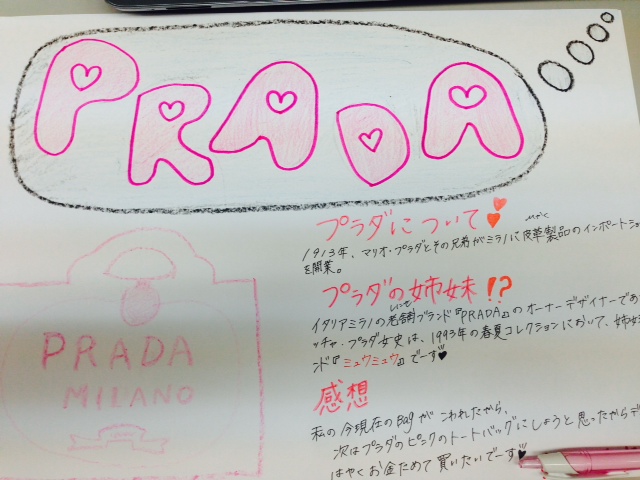 PRADA
プラダについて
1913年、マリオ・プラダとその兄弟がミラノに皮革製品のインポートショ
ひかく
を開業。
プラダの姉妹!?
イタリアミラノの老舗ブランド『PRADA』のオーナーデザイナーであ
しにせ
ッチャ・プラダ女史は、1993年の春夏コレクションにおいて、姉妹
ンド『ミュウミュウ』でーす♥
感想
私の今現在のBagがこわれたから、
次はプラダのピンクのトートバッグにしようと思ったからデ
はやくお金ためて買いたいでーす♥
PRADA
MILANO